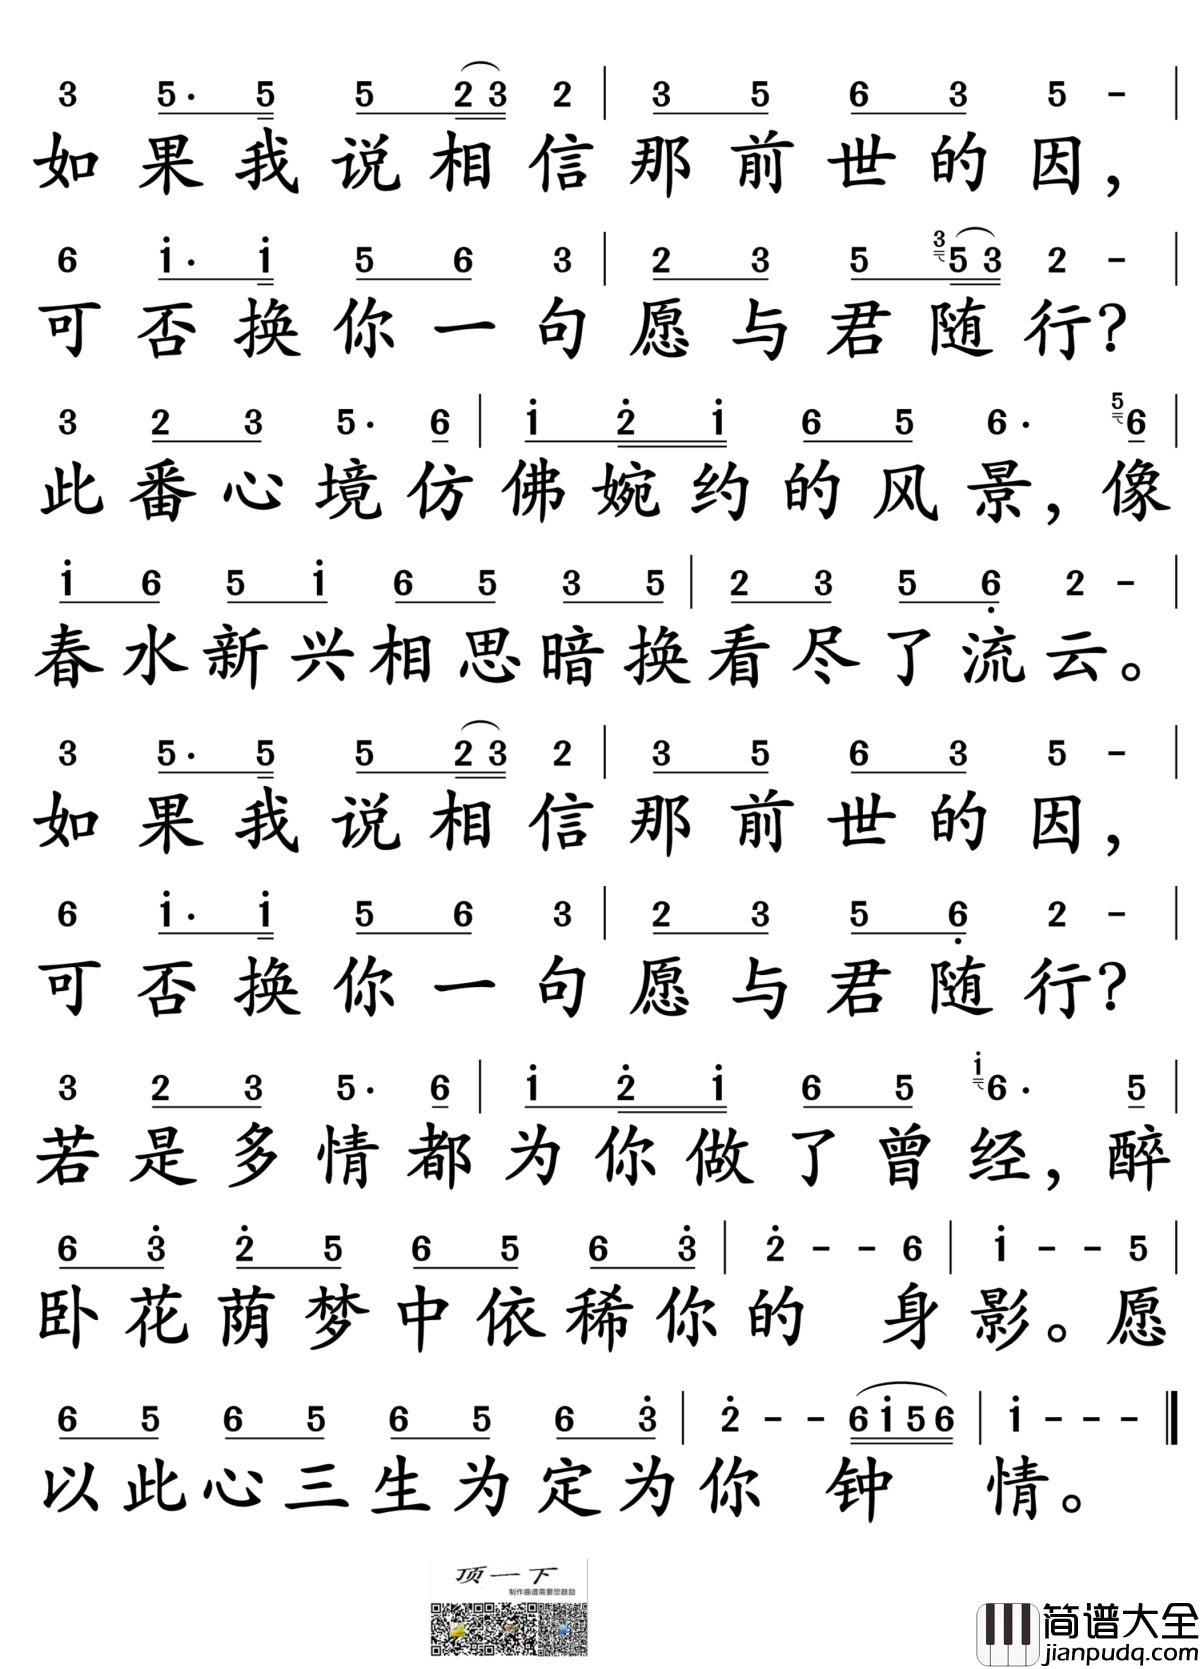 3 5· 5 5 2 3 2 | 3 5 6 3 5 - |
如果我说相信那前世的因，
6 i· i 5 6 3 | 2 3 5 3 5 3 2 - |
可否换你一句愿与君随行？
3 2 3 5· 6 | i 2 i 6 5 6· 5 6 |
此番心境仿佛婉约的风景，像
i 6 5 i 6 5 3 5 | 2 3 5 6 2 - |
春水新兴相思暗换看尽了流云。
3 5· 5 5 2 3 2 | 3 5 6 3 5 - |
如果我说相信那前世的因，
6 i· i 5 6 3 | 2 3 5 6 2 - |
可否换你一句愿与君随行？
3 2 3 5· 6 | i 2 i 6 5 i 6· 5 |
若是多情都为你做了曾经，醉
6 3 2 5 6 5 6 3 | 2 - - 6 | i - - 5 |
卧花荫梦中依稀你的 身影。愿
6 5 6 5 6 5 6 3 | 2 - - 6 i 5 6 | i - - - ||
以此心三生为定为你 钟 情。
顶一下
制作曲谱需要您鼓励
简谱大全
jianpudq.com